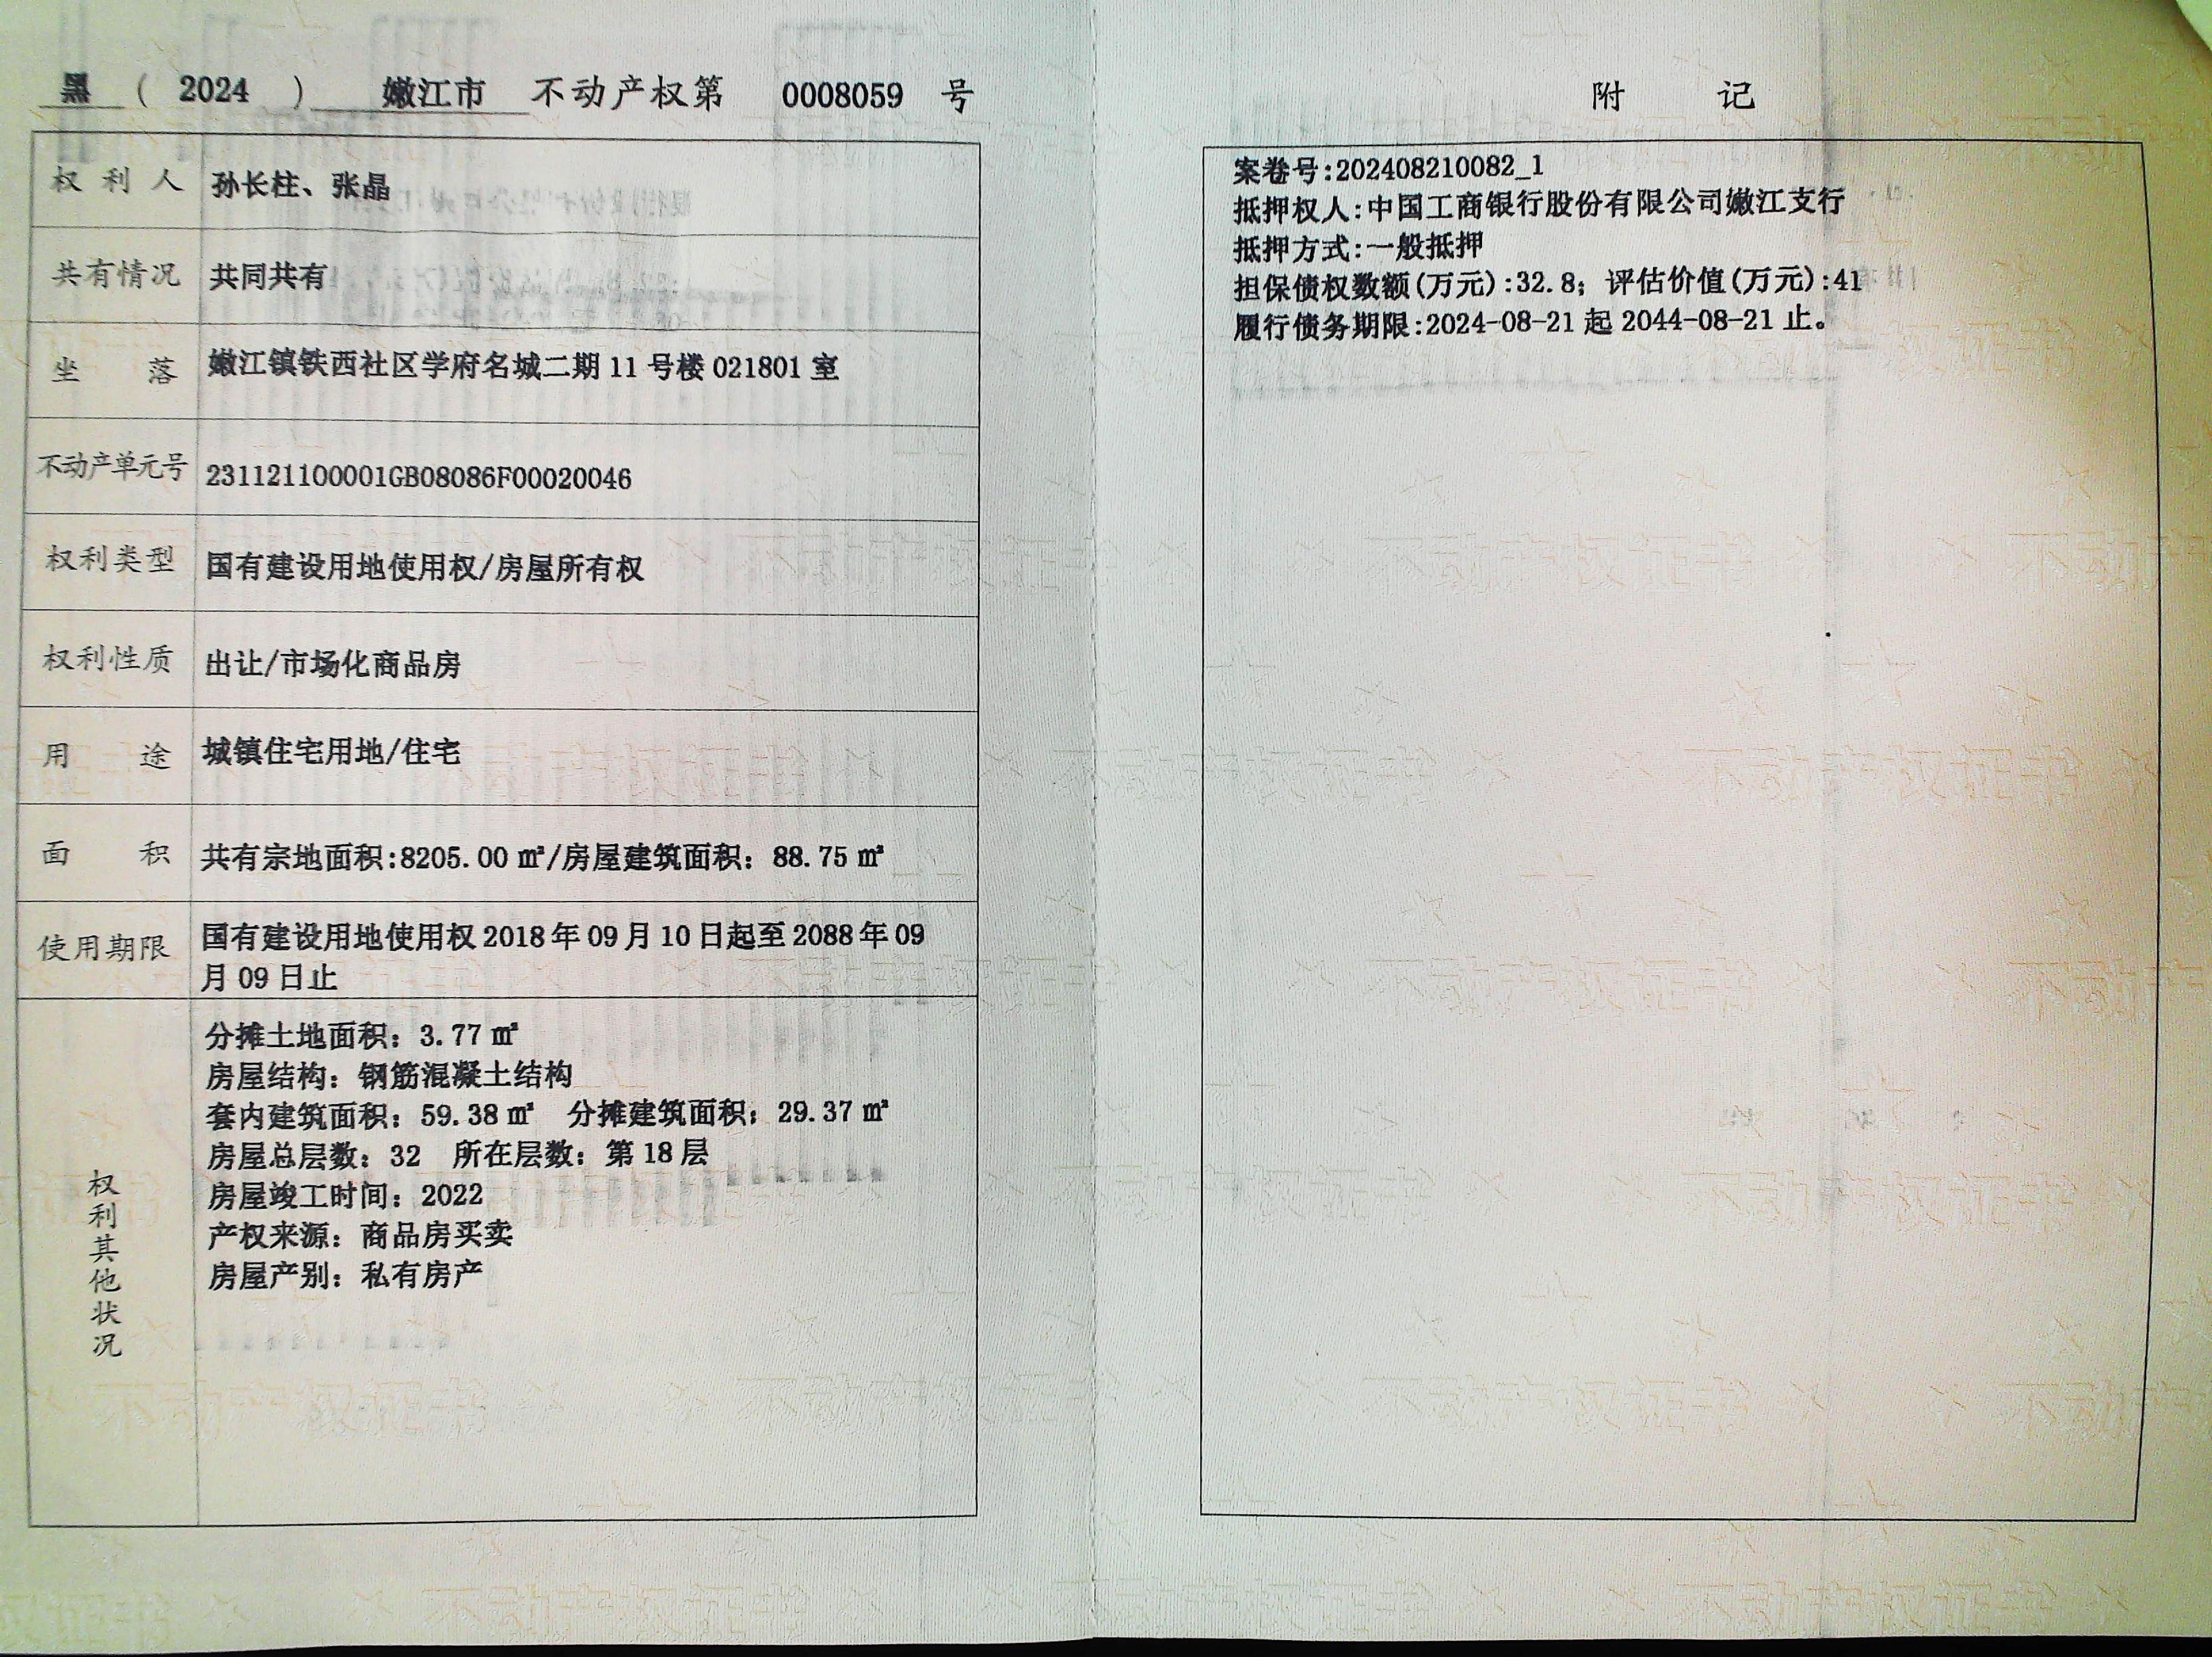 黑 ( 2024 ) 嫩江市 不动产权第 0008059 号
权利人 孙长柱、张晶
共有情况 共同共有
坐落 嫩江镇铁西社区学府名城二期 11 号楼 021801 室
不动产单元号 231121100001GB08086F00020046
权利类型 国有建设用地使用权/房屋所有权
权利性质 出让/市场化商品房
用途 城镇住宅用地/住宅
面积 共有宗地面积:8205.00 ㎡/房屋建筑面积: 88.75 ㎡
使用期限 国有建设用地使用权 2018 年 09 月 10 日起至 2088 年 09
月 09 日止
权利其他状况
分摊土地面积: 3.77 ㎡
房屋结构: 钢筋混凝土结构
套内建筑面积: 59.38 ㎡ 分摊建筑面积: 29.37 ㎡
房屋总层数: 32 所在层数: 第 18 层
房屋竣工时间: 2022
产权来源: 商品房买卖
房屋产别: 私有房产
附记
案卷号:202408210082_1
抵押权人:中国工商银行股份有限公司嫩江支行
抵押方式:一般抵押
担保债权数额(万元):32.8; 评估价值(万元):41
履行债务期限:2024-08-21 起 2044-08-21 止。